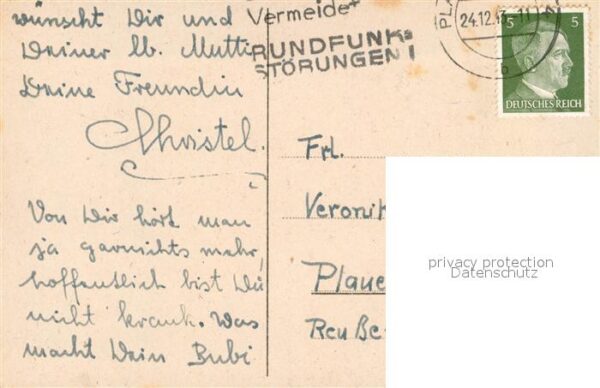 wünscht Dir und
Deiner lb. Mutti
Deine Freundin
Christel.
Von Dir hört man
ja garnichts mehr,
hoffentlich bist Du
nicht krank. Was
macht Dein Bubi
Vermeidet
RUNDFUNK-
STÖRUNGEN!
24.12.
11
b
5 5
DEUTSCHES REICH
Frl.
Veronik
Plaue
Reuße
privacy protection
Datenschutz